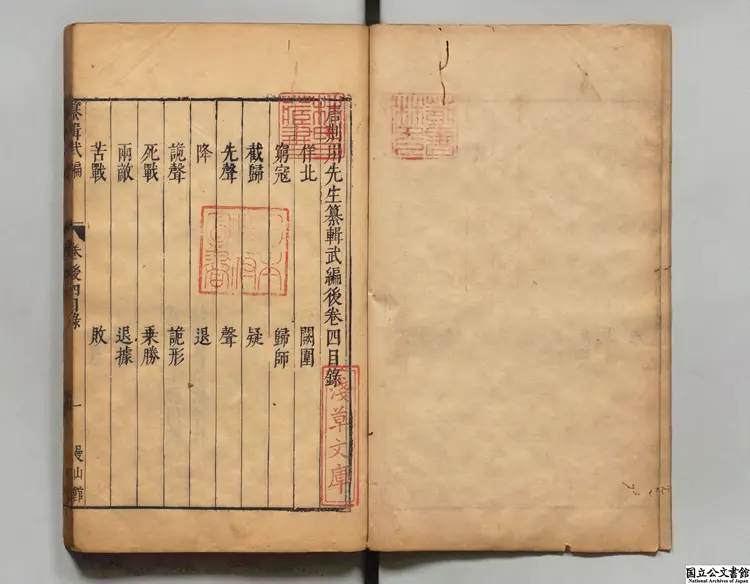 唐荆川先生纂輯武編後卷四目錄
佯北 闕圍
窮寇 歸師
截歸 疑
先聲 聲
降 退
詭聲 詭形
死戰 乘勝
兩敵 退據
苦戰 敗
纂輯武編 卷後四目錄 一 曼山館
淺草文庫
日本政府圖書
林氏藏書
国立公文書館
National Archives of Japan